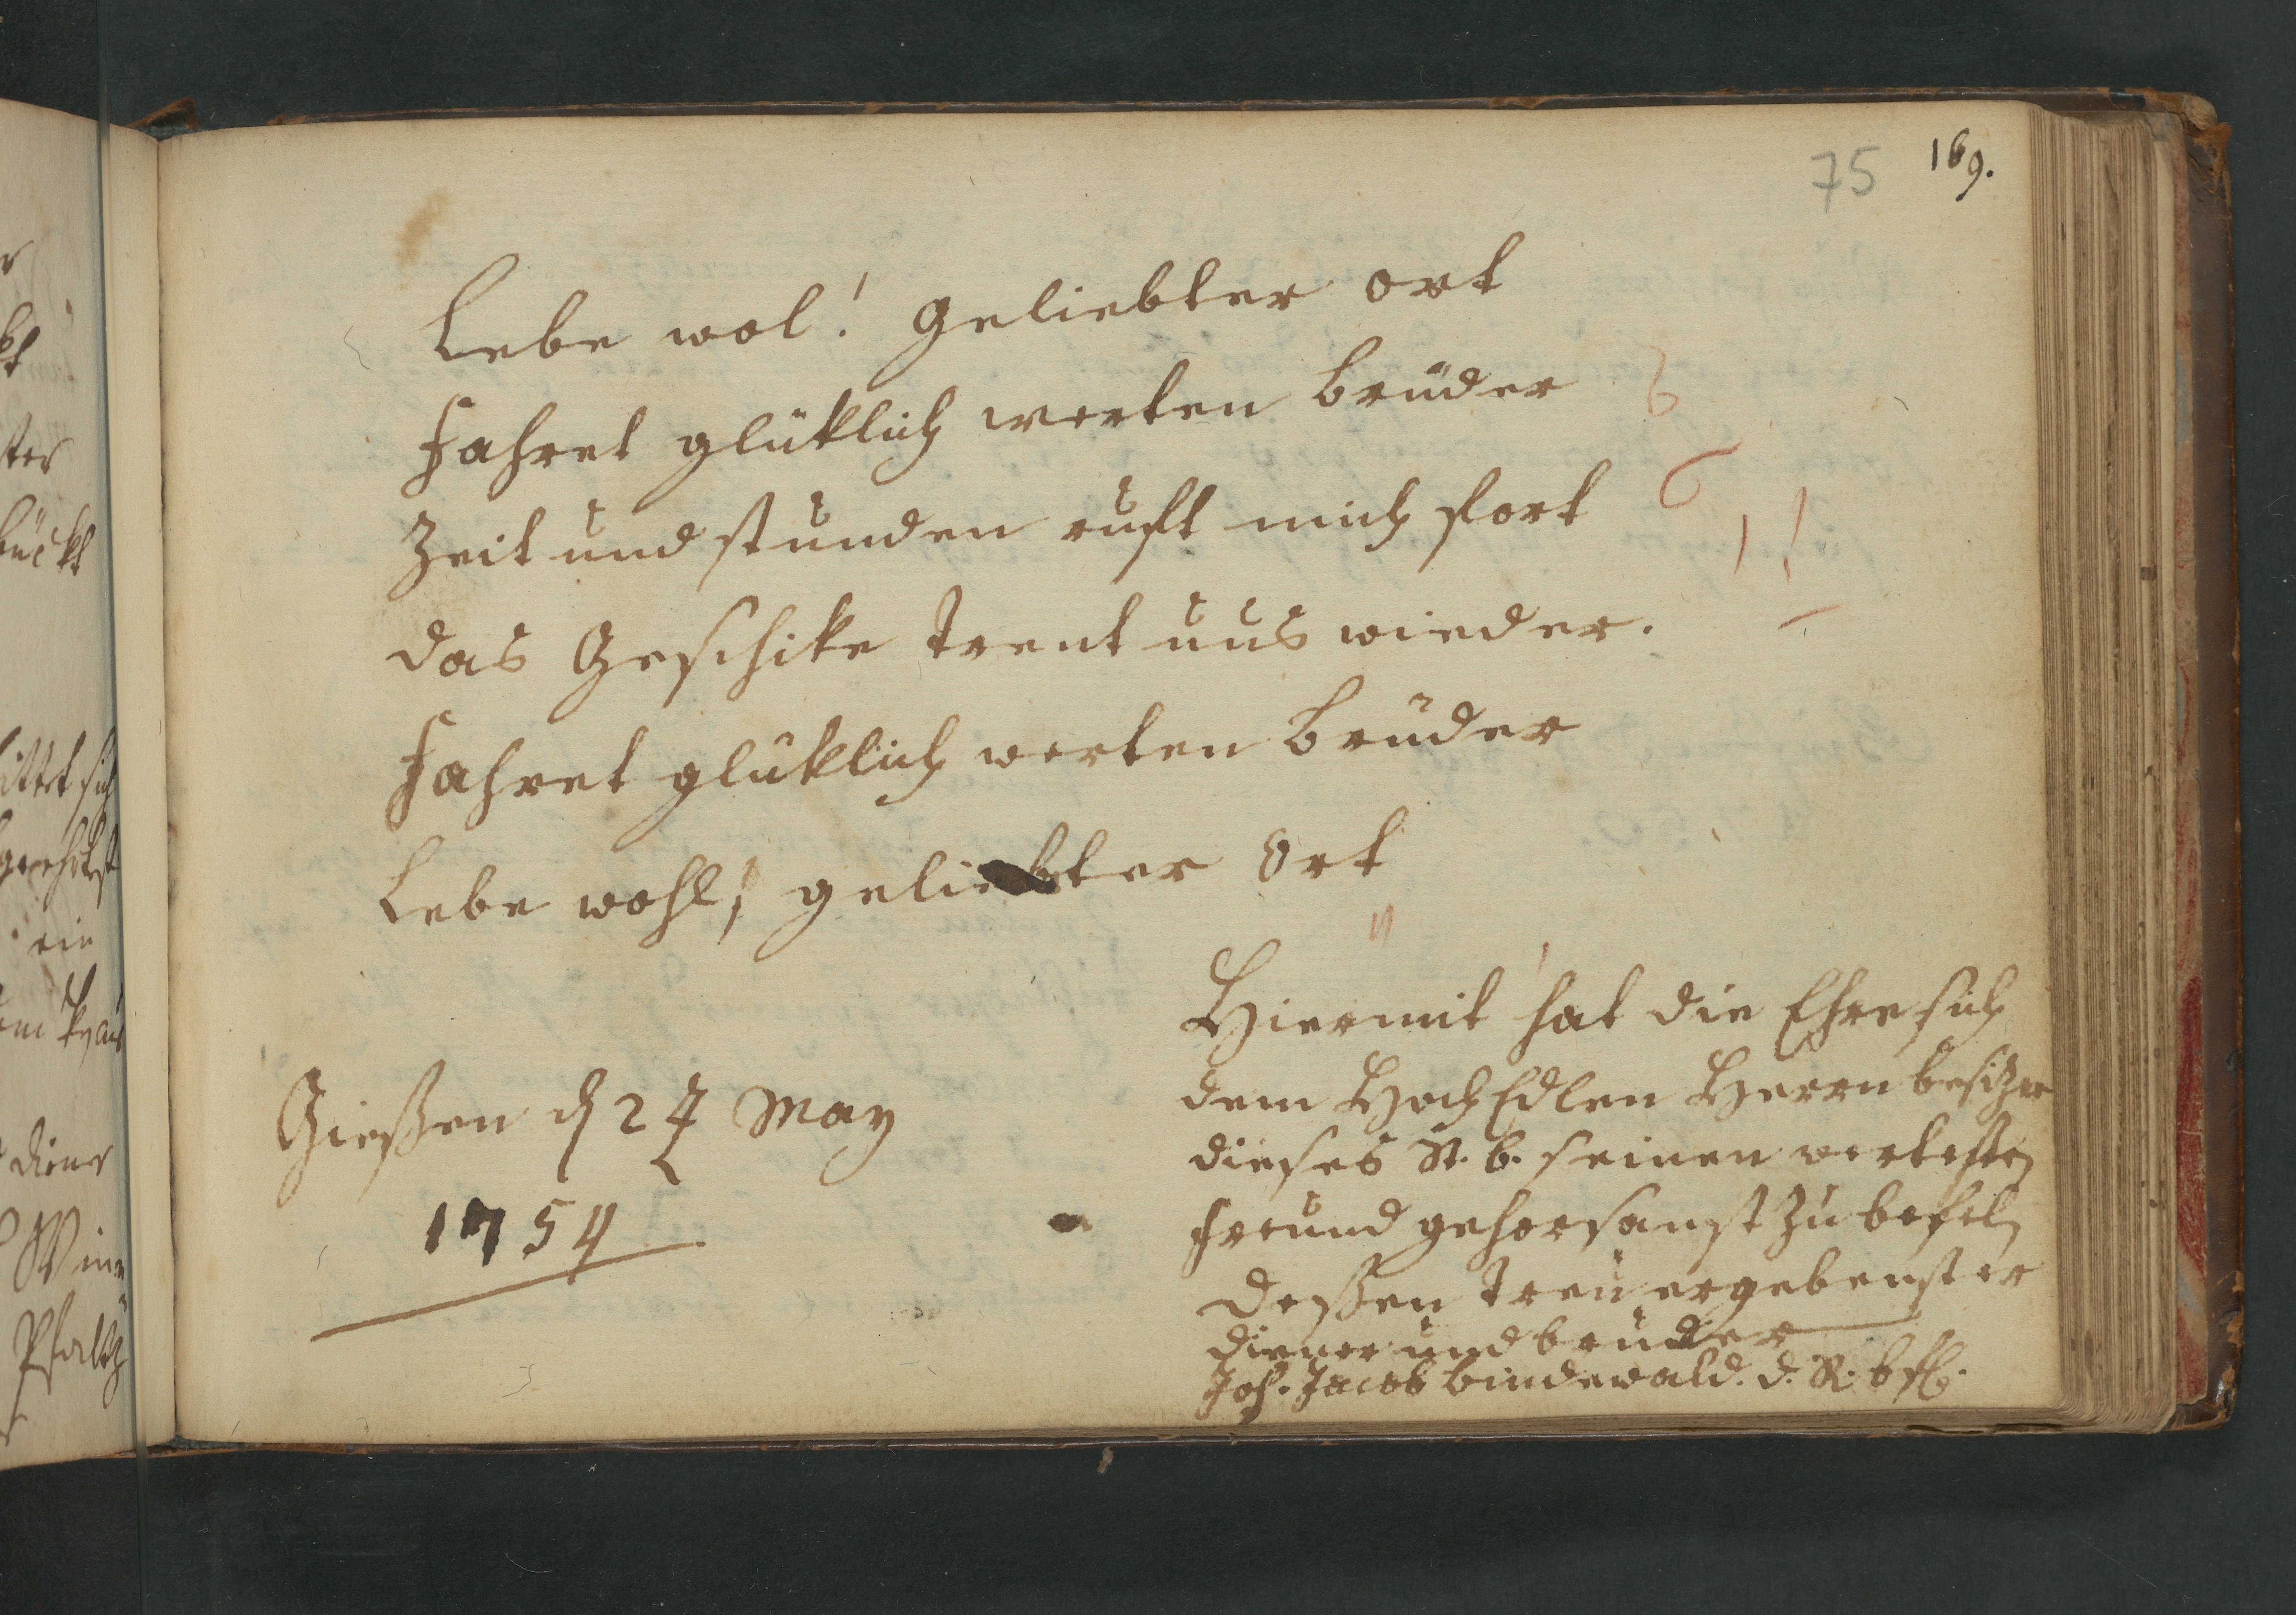 75 169.
Lebe wol! Geliebter ort
Fahret glüklich werten Brüder
Zeit und stunden ruft mich fort
das Geschike trent uns wieder.
Fahret glüklich werten Brüder
Lebe wohl! geliebter Ort
Hiermit hat die Ehre sich
dem HochEdlen Herrn besitzer
dieses St. b. seinen wertesten
freund gehorsamst zu befeln
Deßen treu ergebenster
diener und bruder
Joh. Jacob Bindewald. d. R. bfl.
Gießen d 27 May
1754